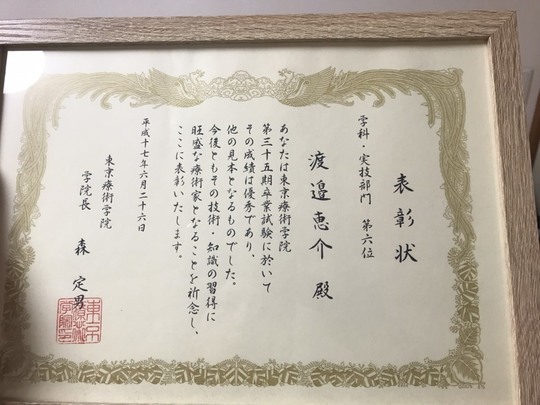 表彰状
学科・実技部門　第六位
渡邉恵介 殿
あなたは東京療術学院
第三十五期卒業試験に於いて
その成績は優秀であり、
他の見本となるものでした。
今後ともその技術・知識の習得に
旺盛な療術家となることを祈念し、
ここに表彰いたします。
平成十七年六月二十六日
東京療術学院
学院長　森 定男